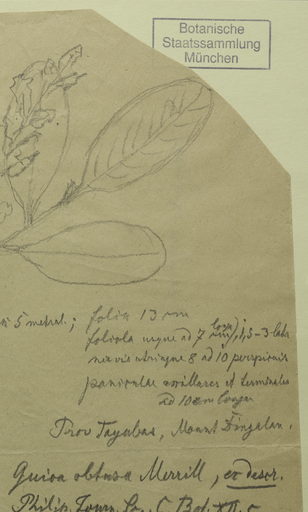 Botanische
Staatssammlung
München
5 metral.; folia 13 cm
foliola usque ad 7 cm longa, 1,5-3 lata
nervis utrinque 8 ad 10 perspicuis
paniculae axillares et terminales
ad 10 cm longae
Prov Tayabas, Mount Dingalan.
Guioa obtusa Merrill, ex descr.
Philip. Journ. Sc. C. Bot.